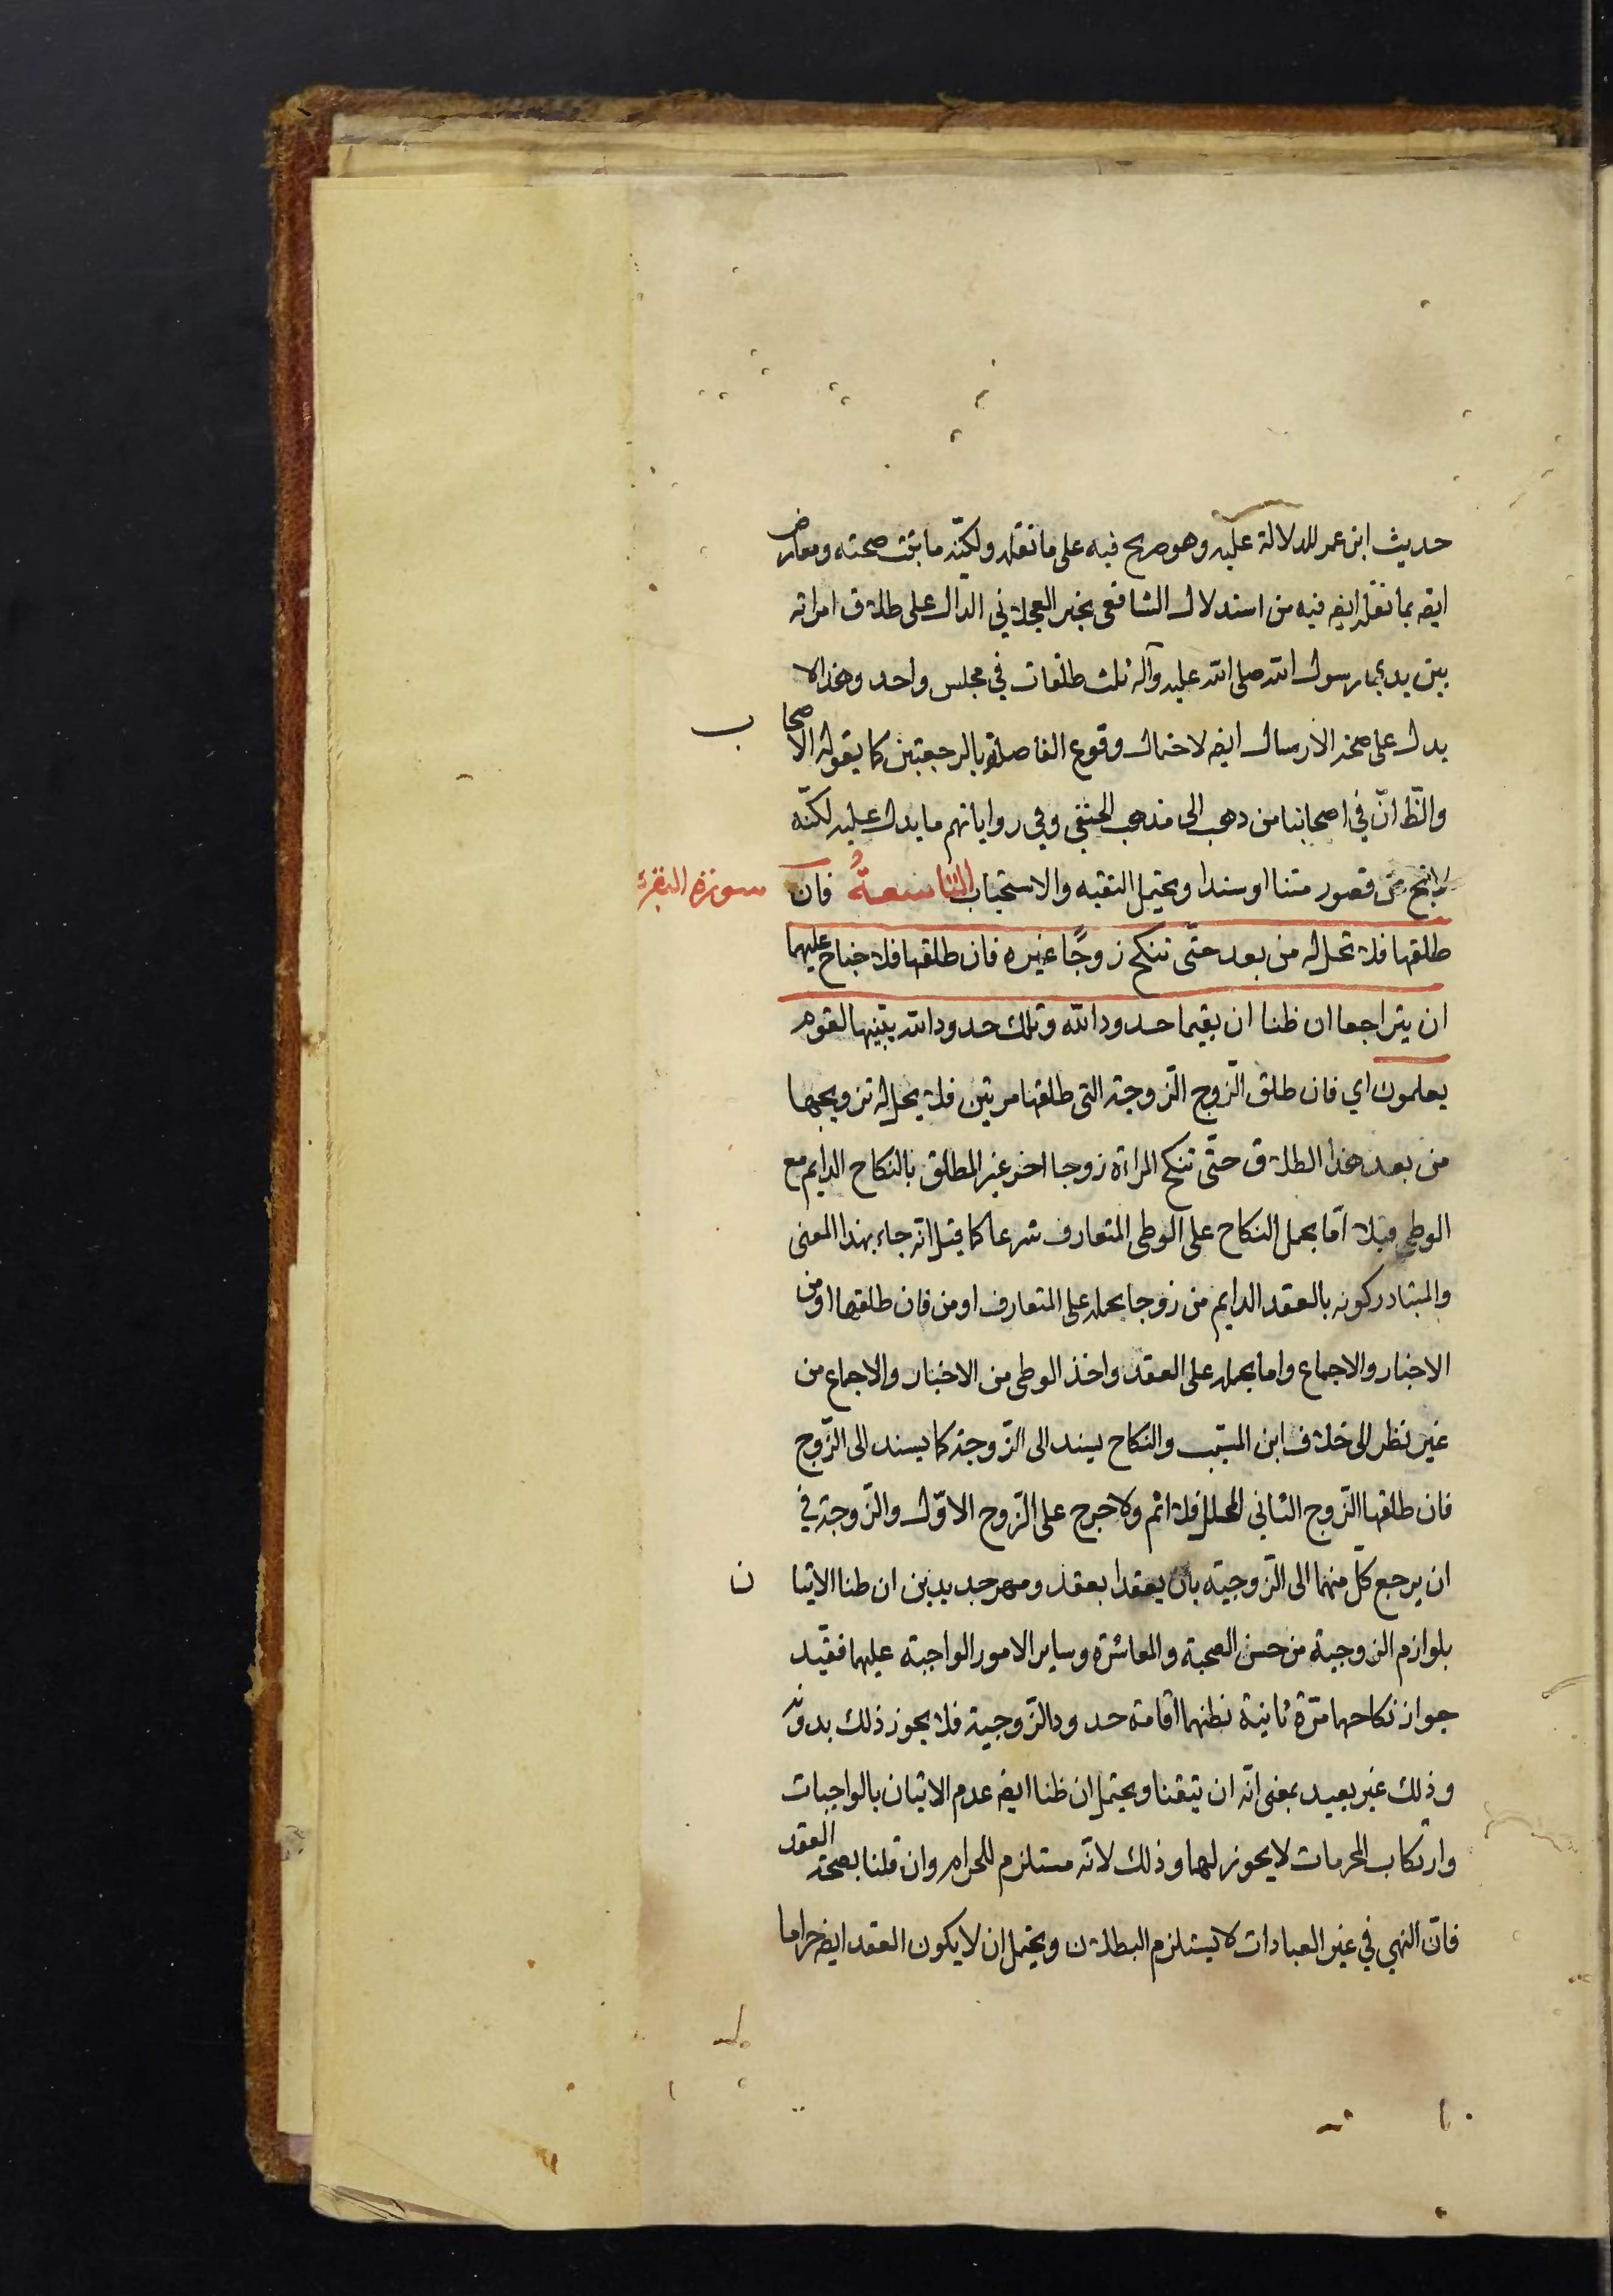 حديث ابن عمر للدلالة عليه وهو صريح فيه على ما نقله ولكنّه ما ثبت صحته ومعارض
ايضه بما نقله ايضه فيه من استدلال الشافعي بخبر العجلاني الدال على طلاق امراته
بين يدي رسول الله صلى الله عليه وآله ثلث طلقات في مجلس واحد وهذا لا
يدل على صحة الارسال ايضه لاحتمال وقوع الفاصلة بالرجعتين كما يقوله الاصحاب
والظ انّ في اصحابنا من ذهب الى مذهب الحنفي وفي رواياتهم ما يدل عليه لكنّه
قصور متنا او سندا ويحتمل التقيه والاستحباب التاسعةُ فان
سورة البقرة
طلقها فلا تحل له من بعد حتّى تنكح زوجًا غيره فان طلقها فلا جناح عليهما
ان يتراجعا ان ظنا ان يقيما حدود الله وتلك حدود الله يبيّنها لقوم
يعلمون اي فان طلق الزّوج الزّوجة التى طلقها مرتين فلا يحل له تزويجها
من بعد هذا الطلاق حتّى تنكح المراة زوجا اخر غير المطلق بالنكاح الدايم مع
الوطى قبلا امّا بحمل النكاح على الوطى المتعارف شرعا كما قيل انّه جاء بهذا المعنى
والمتبادر كونه بالعقد الدايم من زوجا بحمله على المتعارف او من فان طلقها او من
الاخبار والاجماع واما بحمله على العقد واخذ الوطى من الاخبار والاجماع من
غير نظر الى خلاف ابن المسيّب والنكاح يسند الى الزّوجة كما يسند الى الزّوج
فان طلقها الزّوج الثاني المحلل فلا اثم ولا حرج على الزّوج الاوّل والزّوجة في
ان يرجع كلّ منهما الى الزّوجيّة بان يعقدا بعقد ومهر جديدين ان ظنا الاتيان
بلوازم الزوجية من حسن الصحبة والمعاشرة وساير الامور الواجبة عليهما فقيّد
جواز نكاحهما مرّة ثانية بظنهما اقامة حدود الزّوجية فلا يجوز ذلك بدونه
وذلك غير بعيد بمعنى انّه ان تيقنا ويحتمل ان ظنا ايضه عدم الاتيان بالواجبات
وارتكاب المحرمات لا يجوز لهما وذلك لانّه مستلزم للحرام وان قلنا بصحة العقد
فانّ النهي في غير العبادات لا يستلزم البطلان ويحتمل ان لا يكون العقد ايضه حراما